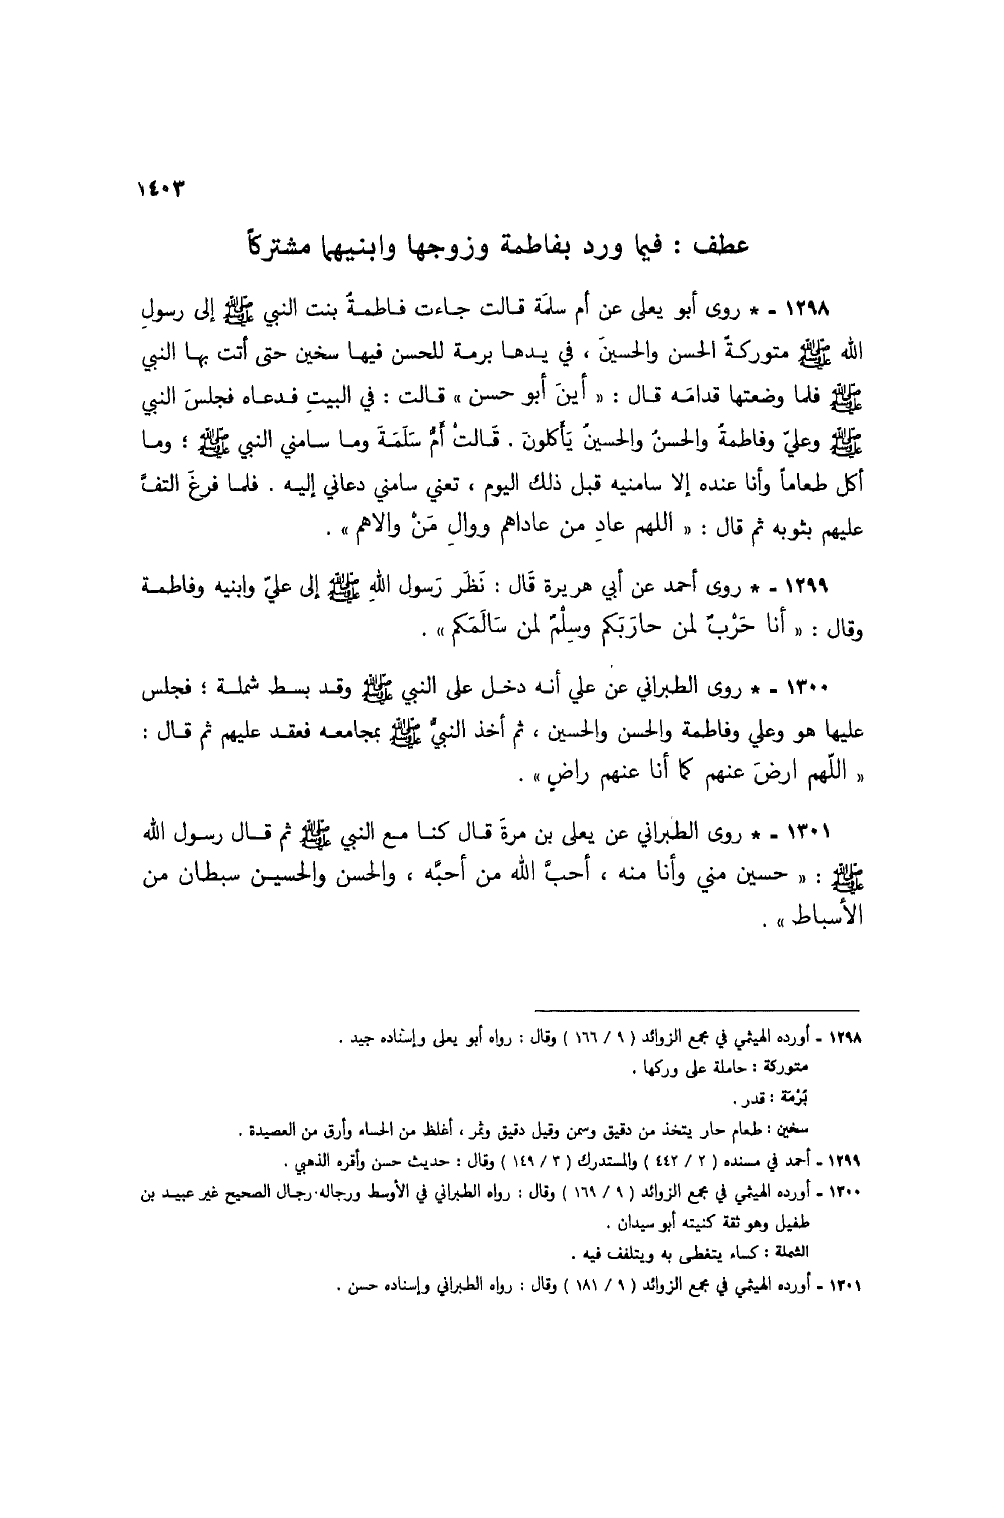 ١٤٠٣
عطف : فيما ورد بفاطمة وزوجها وابنيهما مشتركاً
١٢٩٨ - * روى أبو يعلى عن أم سلمَة قالت جاءت فاطمةُ بنت النبي ﷺ إلى رسولِ
الله ﷺ متوركةً الحسن والحسينَ ، في يدها برمة للحسن فيها سخين حتى أتت بها النبي
ﷺ فلما وضعتها قدامَه قال : « أينَ أبو حسن » قالت : في البيتِ فدعاه فجلسَ النبي
ﷺ وعليّ وفاطمةُ والحسنُ والحسينُ يَأكلونَ . قَالتْ أمُّ سَلَمَةَ وما سامني النبي ﷺ ؛ وما
أكل طعاماً وأنا عنده إلا سامنيه قبل ذلك اليوم ، تعني سامني دعاني إليه . فلما فرغَ التفَّ
عليهم بثوبه ثم قال : « اللهم عادِ من عاداهم ووالِ مَنْ والاهم » .
١٢٩٩ - * روى أحمد عن أبي هريرة قَال : نَظَر رَسول اللهِ ﷺ إلى عليّ وابنيه وفاطمة
وقال : « أنا حَرْبٌ لمن حارَبَكم وسِلْمٌ لمن سَالَمَكم » .
١٣٠٠ - * روى الطبراني عن علي أنه دخل على النبي ﷺ وقد بسط شملة ؛ فجلس
عليها هو وعلي وفاطمة والحسن والحسين ، ثم أخذ النبيُّ ﷺ بمجامعه فعقد عليهم ثم قال :
« اللّهم ارضَ عنهم كما أنا عنهم راضٍ » .
١٣٠١ - * روى الطبراني عن يعلى بن مرةَ قال كنا مع النبي ﷺ ثم قال رسول الله
ﷺ : « حسين مني وأنا منه ، أحبَّ الله من أحبَّه ، والحسن والحسين سبطان من
الأسباط » .
١٢٩٨ - أورده الهيثمي في مجمع الزوائد ( ٩ / ١٦٦ ) وقال : رواه أبو يعلى وإسناده جيد .
متوركة : حاملة على وركها .
بُرْمَة : قدر .
سخين : طعام حار يتخذ من دقيق وسمن وقيل دقيق وتمر ، أغلظ من الحساء وأرق من العصيدة .
١٢٩٩ - أحمد في مسنده ( ٢ / ٤٤٢ ) والمستدرك ( ٣ / ١٤٩ ) وقال : حديث حسن وأقره الذهبي .
١٣٠٠ - أورده الهيثمي في مجمع الزوائد ( ٩ / ١٦٩ ) وقال : رواه الطبراني في الأوسط ورجاله رجال الصحيح غير عبيد بن
طفيل وهو ثقة كنيته أبو سيدان .
الشملة : كساء يتغطى به ويتلفف فيه .
١٣٠١ - أورده الهيثمي في مجمع الزوائد ( ٩ / ١٨١ ) وقال : رواه الطبراني وإسناده حسن .